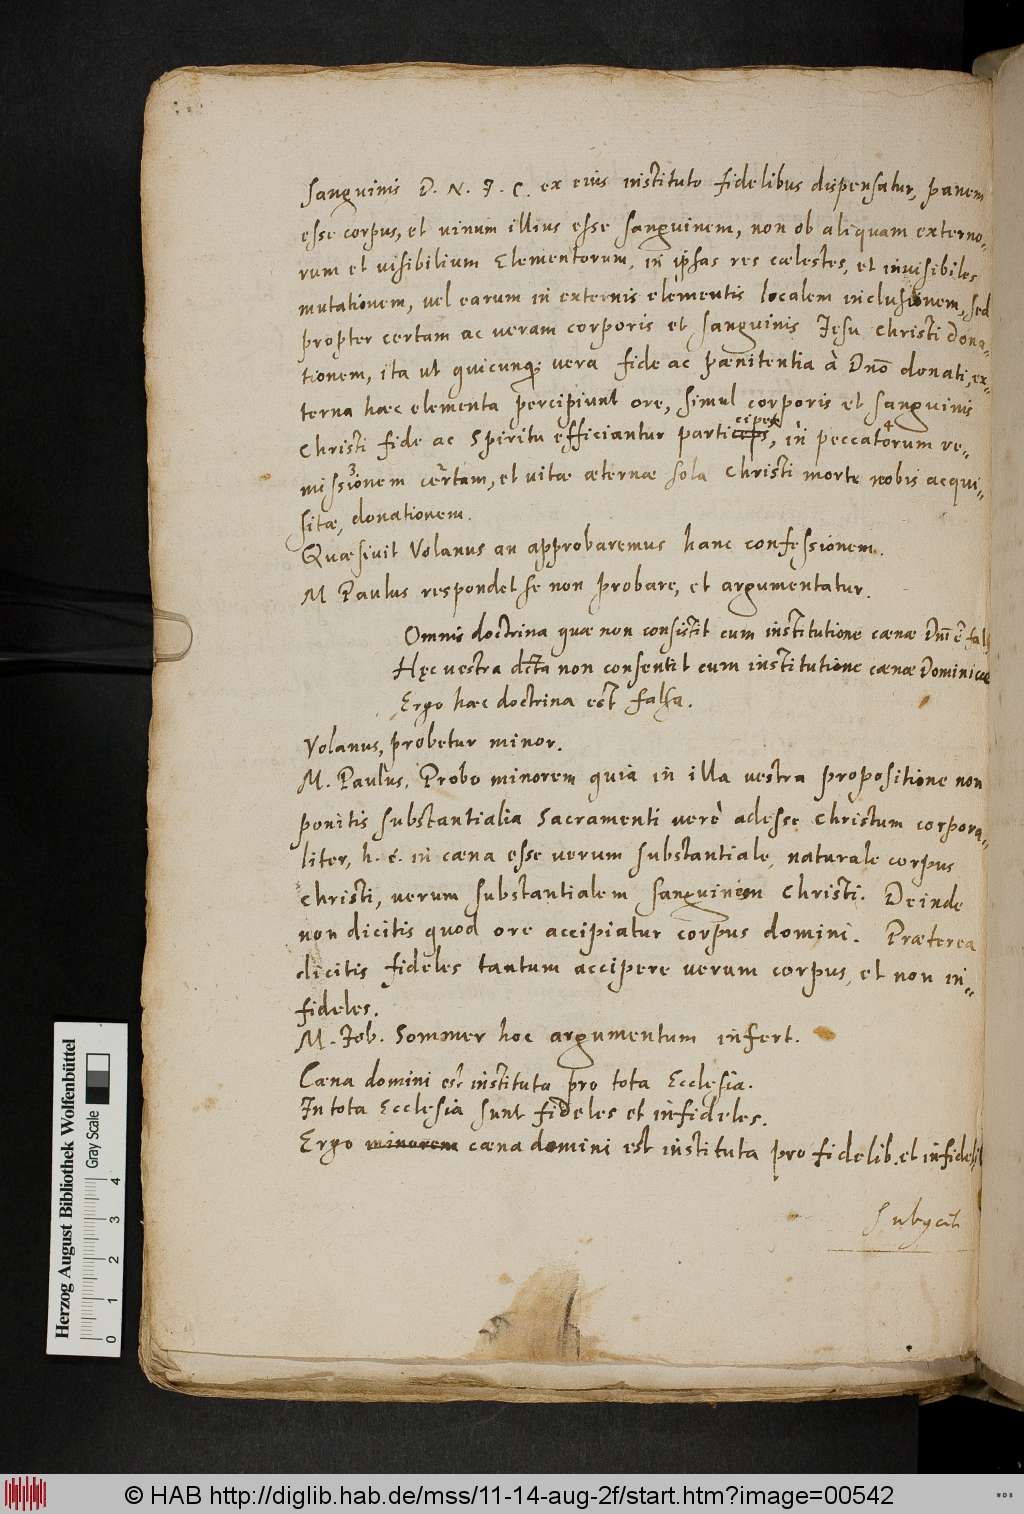 sanguinis D. N. J. C. ex eius instituto fidelibus dispensatur, panem
esse corpus, et vinum illius esse sanguinem, non ob aliquam externo=
rum et visibilium Elementorum, in ipsas res cælestes, et invisibiles
mutationem, vel earum in externis elementis localem inclusionem, sed
propter certam ac veram corporis et sanguinis Jesu Christi dona=
tionem, ita ut quicunq; vera fide ac pænitentia à Dno donati, ex=
terna hæc elementa percipiunt ore, simul corporis et sanguinis
Christi fide ac Spiritu efficiantur participes, in peccatorum re=
missionem certam, et vitæ æternæ sola Christi morte nobis acqui=
sitæ, donationem.
Quæsivit Volanus an approbaremus hanc confessionem.
M Paulus respondet se non probare, et argumentatur.
Omnis doctrina quæ non consistit cum institutione cænæ Dni ē fals
Hęc vestra dcta non consentit cum institutione cænæ Dominicæ
Ergo hæc doctrina est falsa.
Volanus, probetur minor.
M. Paulus, Probo minorem quia in illa vestra propositione non
ponitis substantialia Sacramenti verè adesse Christum corpora=
liter, h. é. in cæna esse verum substantiale, naturale corpus
Christi, verum substantialem sanguinem Christi. Deinde
non dicitis quod ore accipiatur corpus domini. Præterea
dicitis fideles tantum accipere verum corpus, et non in=
fideles.
M. Job. Sommer hoc argumentum infert.
Cæna domini est instituta pro tota Ecclesia.
In tota Ecclesia sunt fideles et infideles.
Ergo minorem cæna domini est instituta pro fidelib. et infidelib
Subycit
Herzog August Bibliothek Wolfenbüttel
Gray Scale
0 1 2 3 4
© HAB http://diglib.hab.de/mss/11-14-aug-2f/start.htm?image=00542